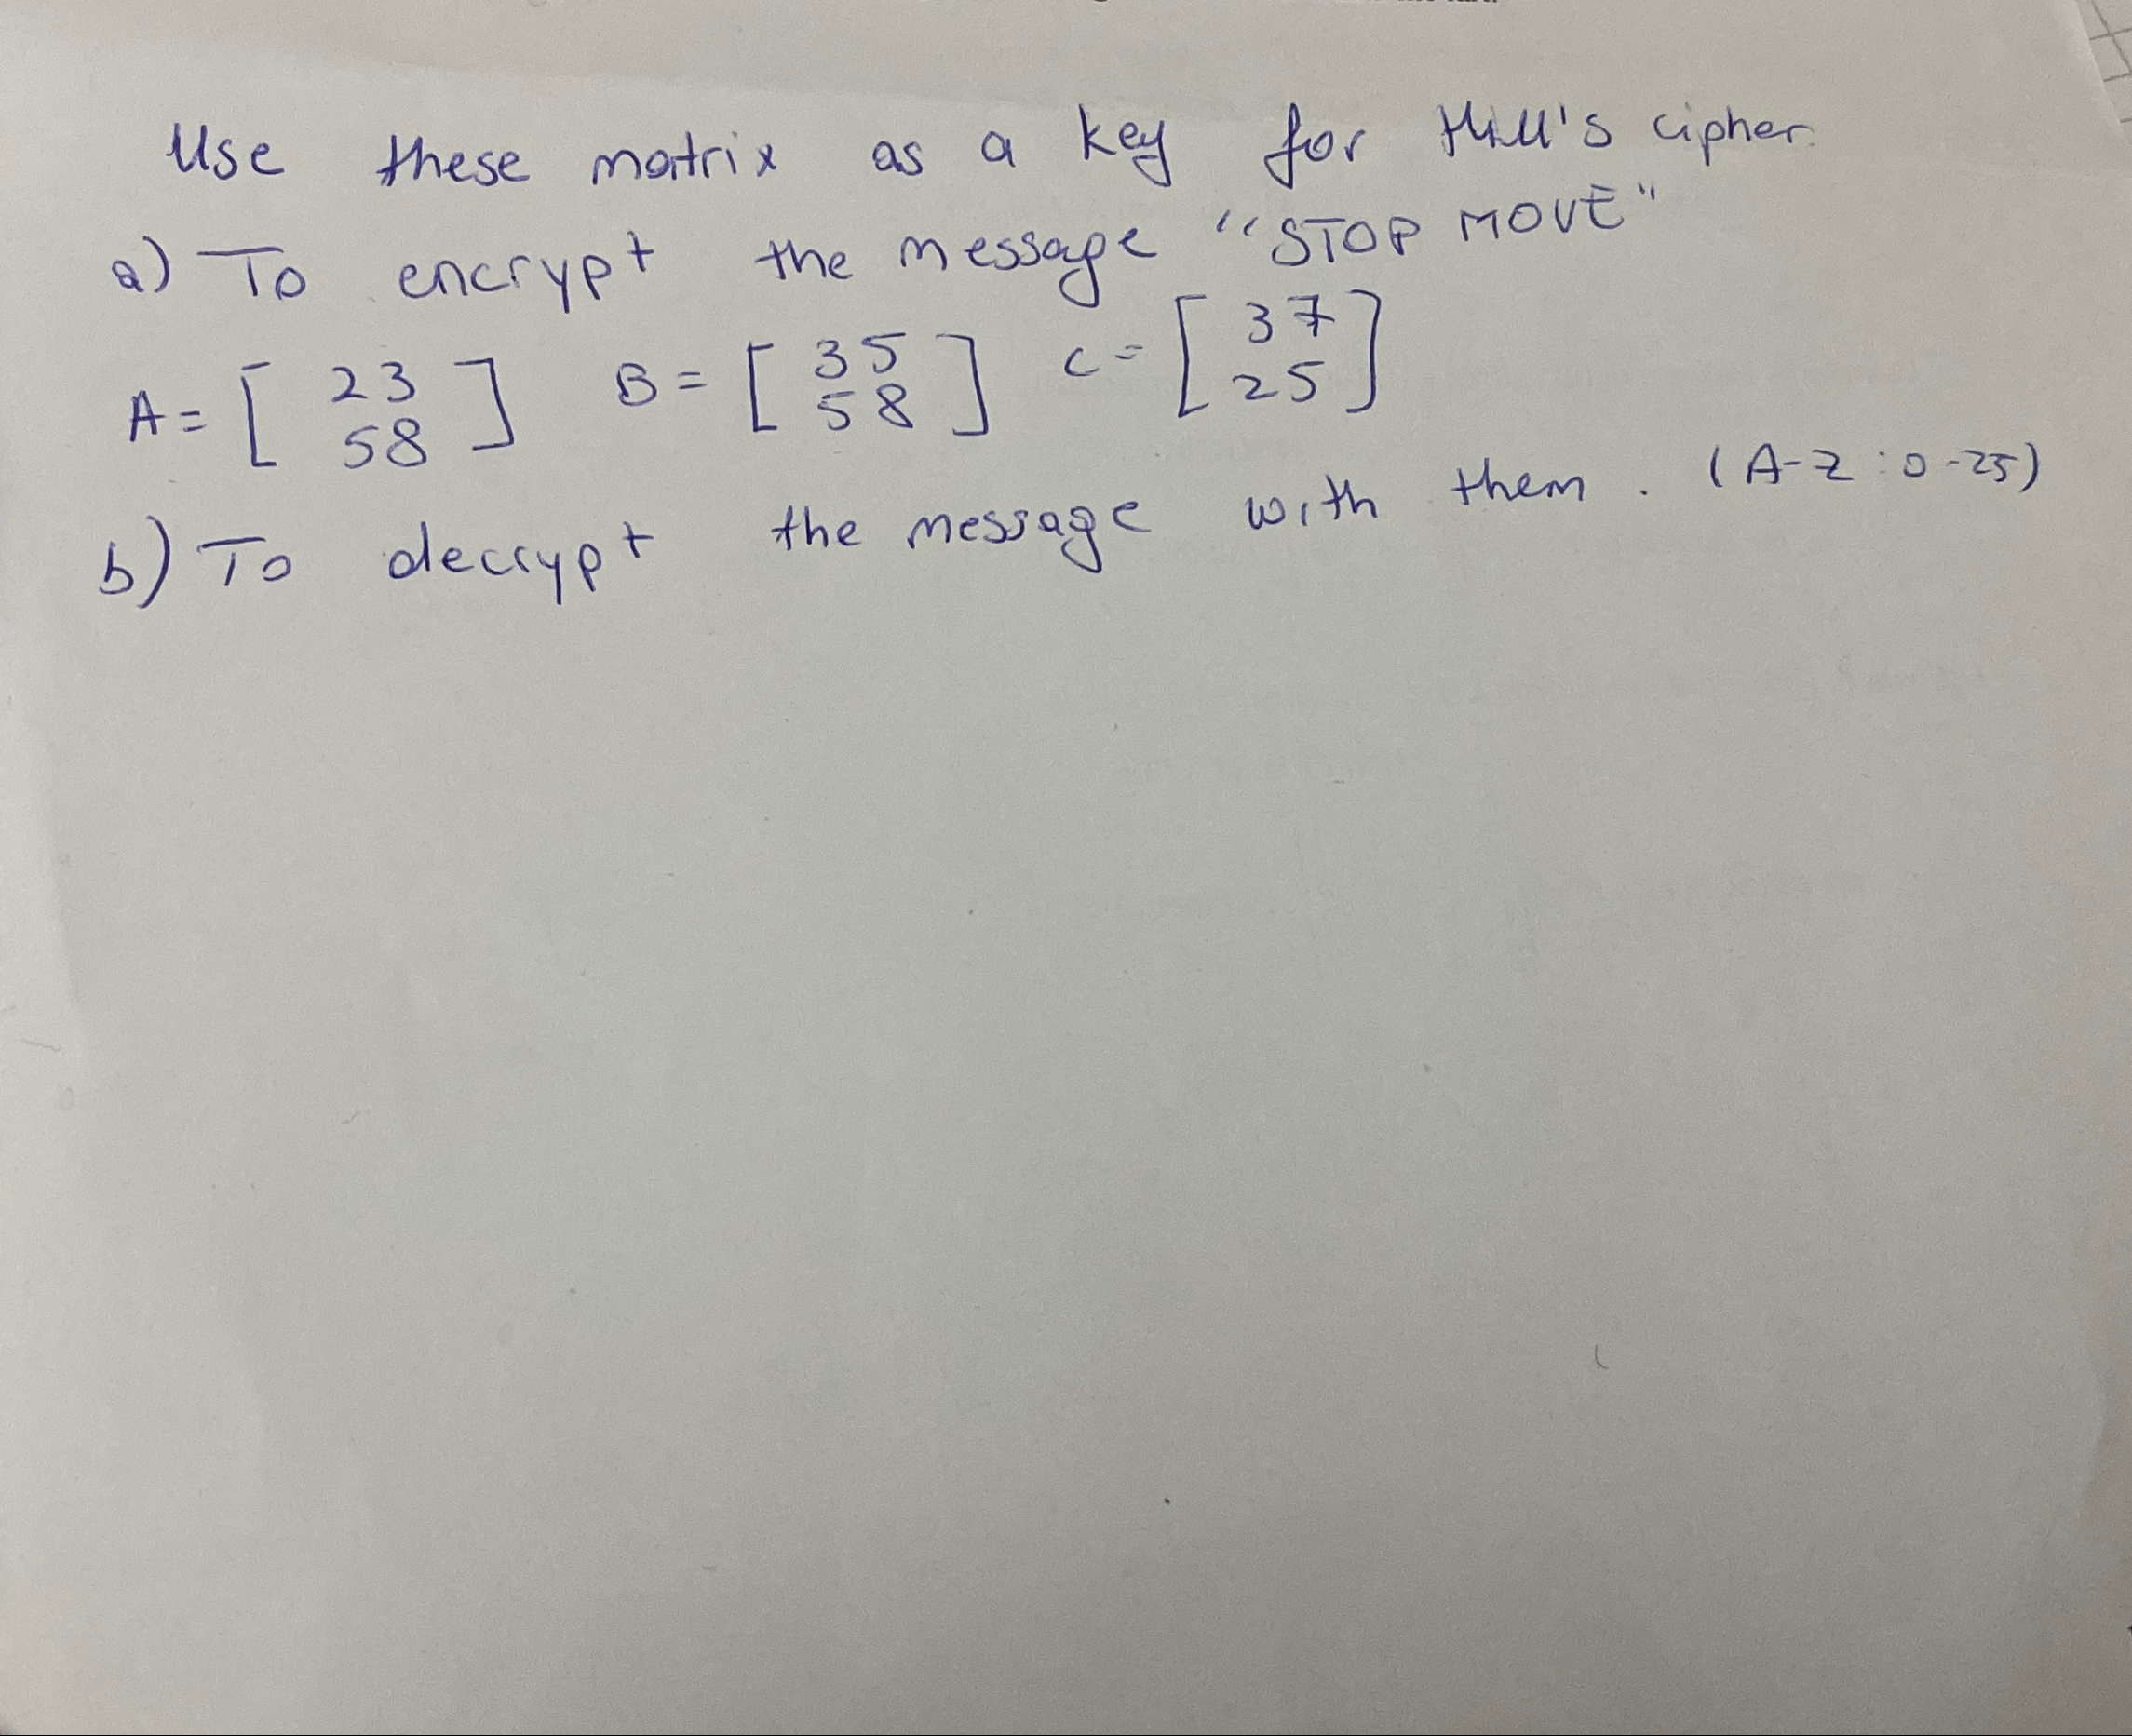 Use these matrix as a key for Hill's cipher.
a) To encrypt the message "STOP MOVE"
A = [ 23 58 ] B = [ 35 58 ] C = [ 37 25 ]
b) To decrypt the message with them. (A-Z : 0-25)